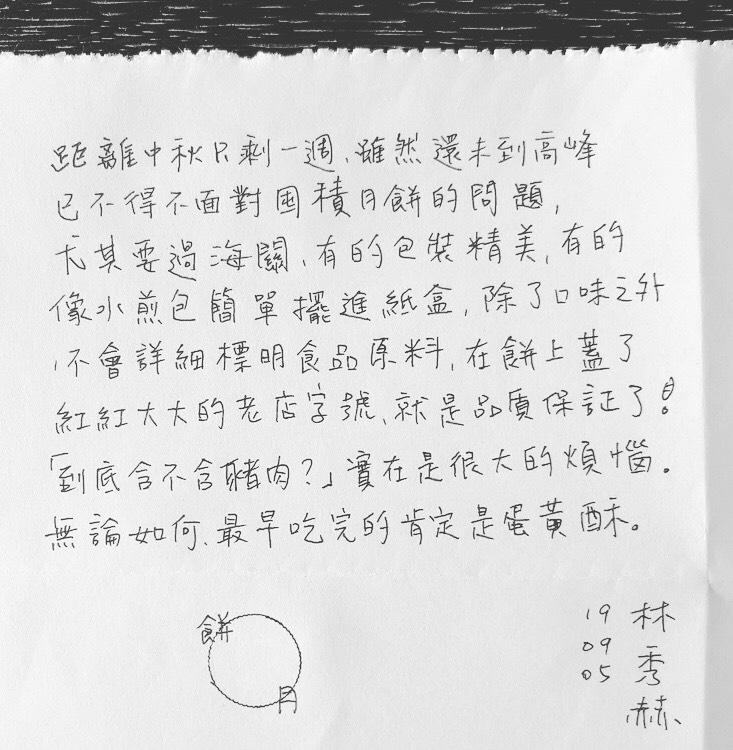 距離中秋只剩一週、雖然還未到高峰
已不得不面對囤積月餅的問題，
尤其要過海關、有的包裝精美，有的
像水煎包簡單擺進紙盒，除了口味之外
，不會詳細標明食品原料，在餅上蓋了
紅紅大大的老店字號、就是品質保証了！
「到底含不含豬肉？」實在是很大的煩惱。
無論如何、最早吃完的肯定是蛋黃酥。
餅
月
19 林
09 秀
05 赫